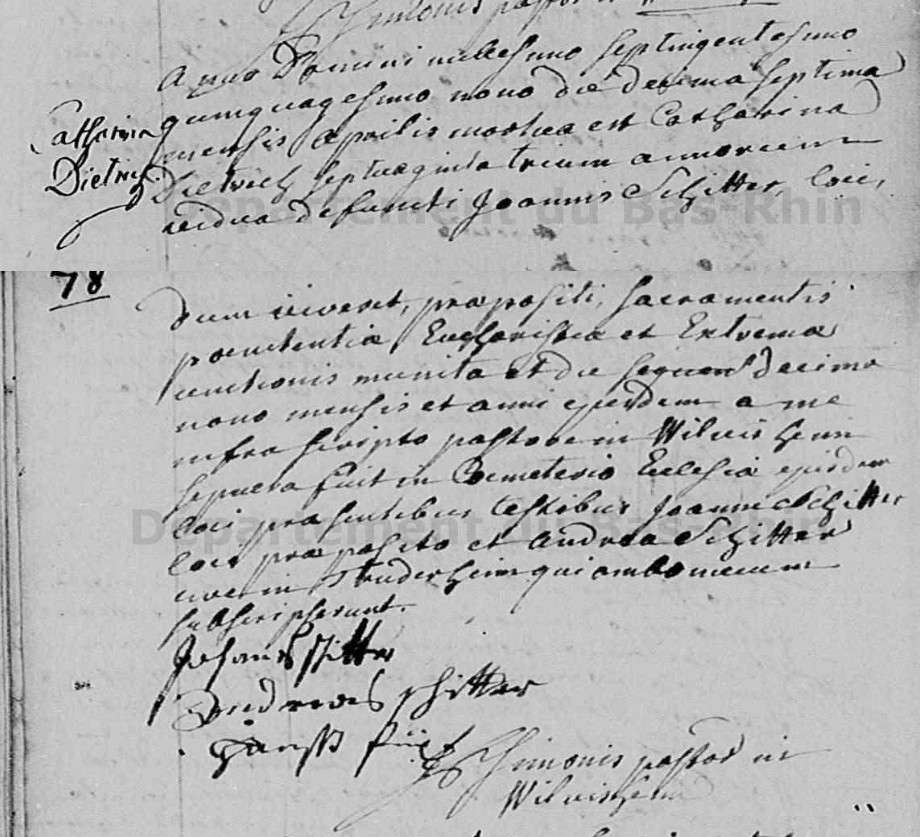 Simonis pastor in
Anno Domini millesimo septingentesimo
quinquagesimo nono die decima septima
mensis Aprilis mortua est Catharina
Dietrich septuaginta trium annorum
vidua defuncti Joannis Schitter, loci,
Catharina
Dietrich
Departement du Bas-Rhin
78
dum viveret, præpositi, sacramentis
pœnitentiæ Eucharistiæ et Extremæ
unctionis munita et die sequenti decima
nono mensis et anni ejusdem a me
infra scripto pastore in Wilwisheim
sepulta fuit in Cœmeterio Eclesiæ ejusdem
loci præsentibus testibus Joanne Schitter
loci præposito et Andrea Schitter
cive in qui ambo mecum
subscripserunt.
Departement du Bas-Rhin
Johanes schitter
Andreas schitter
Simonis pastor in
Wilwisheim